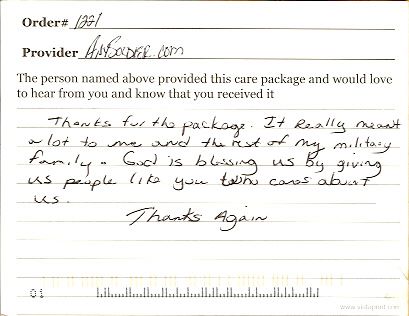 Order# 1221
Provider AnySoldier.com
The person named above provided this care package and would love
to hear from you and know that you received it
Thanks for the package. It Really meant
a lot to me and the rest of my military
family. God is blessing us by giving
us people like you cares about
us.
Thanks Again
01
www.vistaprint.com